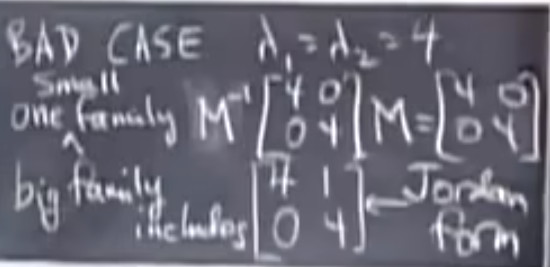 BAD CASE λ₁ = λ₂ = 4
small
one family M⁻¹ [4 0; 0 4] M = [4 0; 0 4]
big family
includes [4 1; 0 4] ← Jordan form